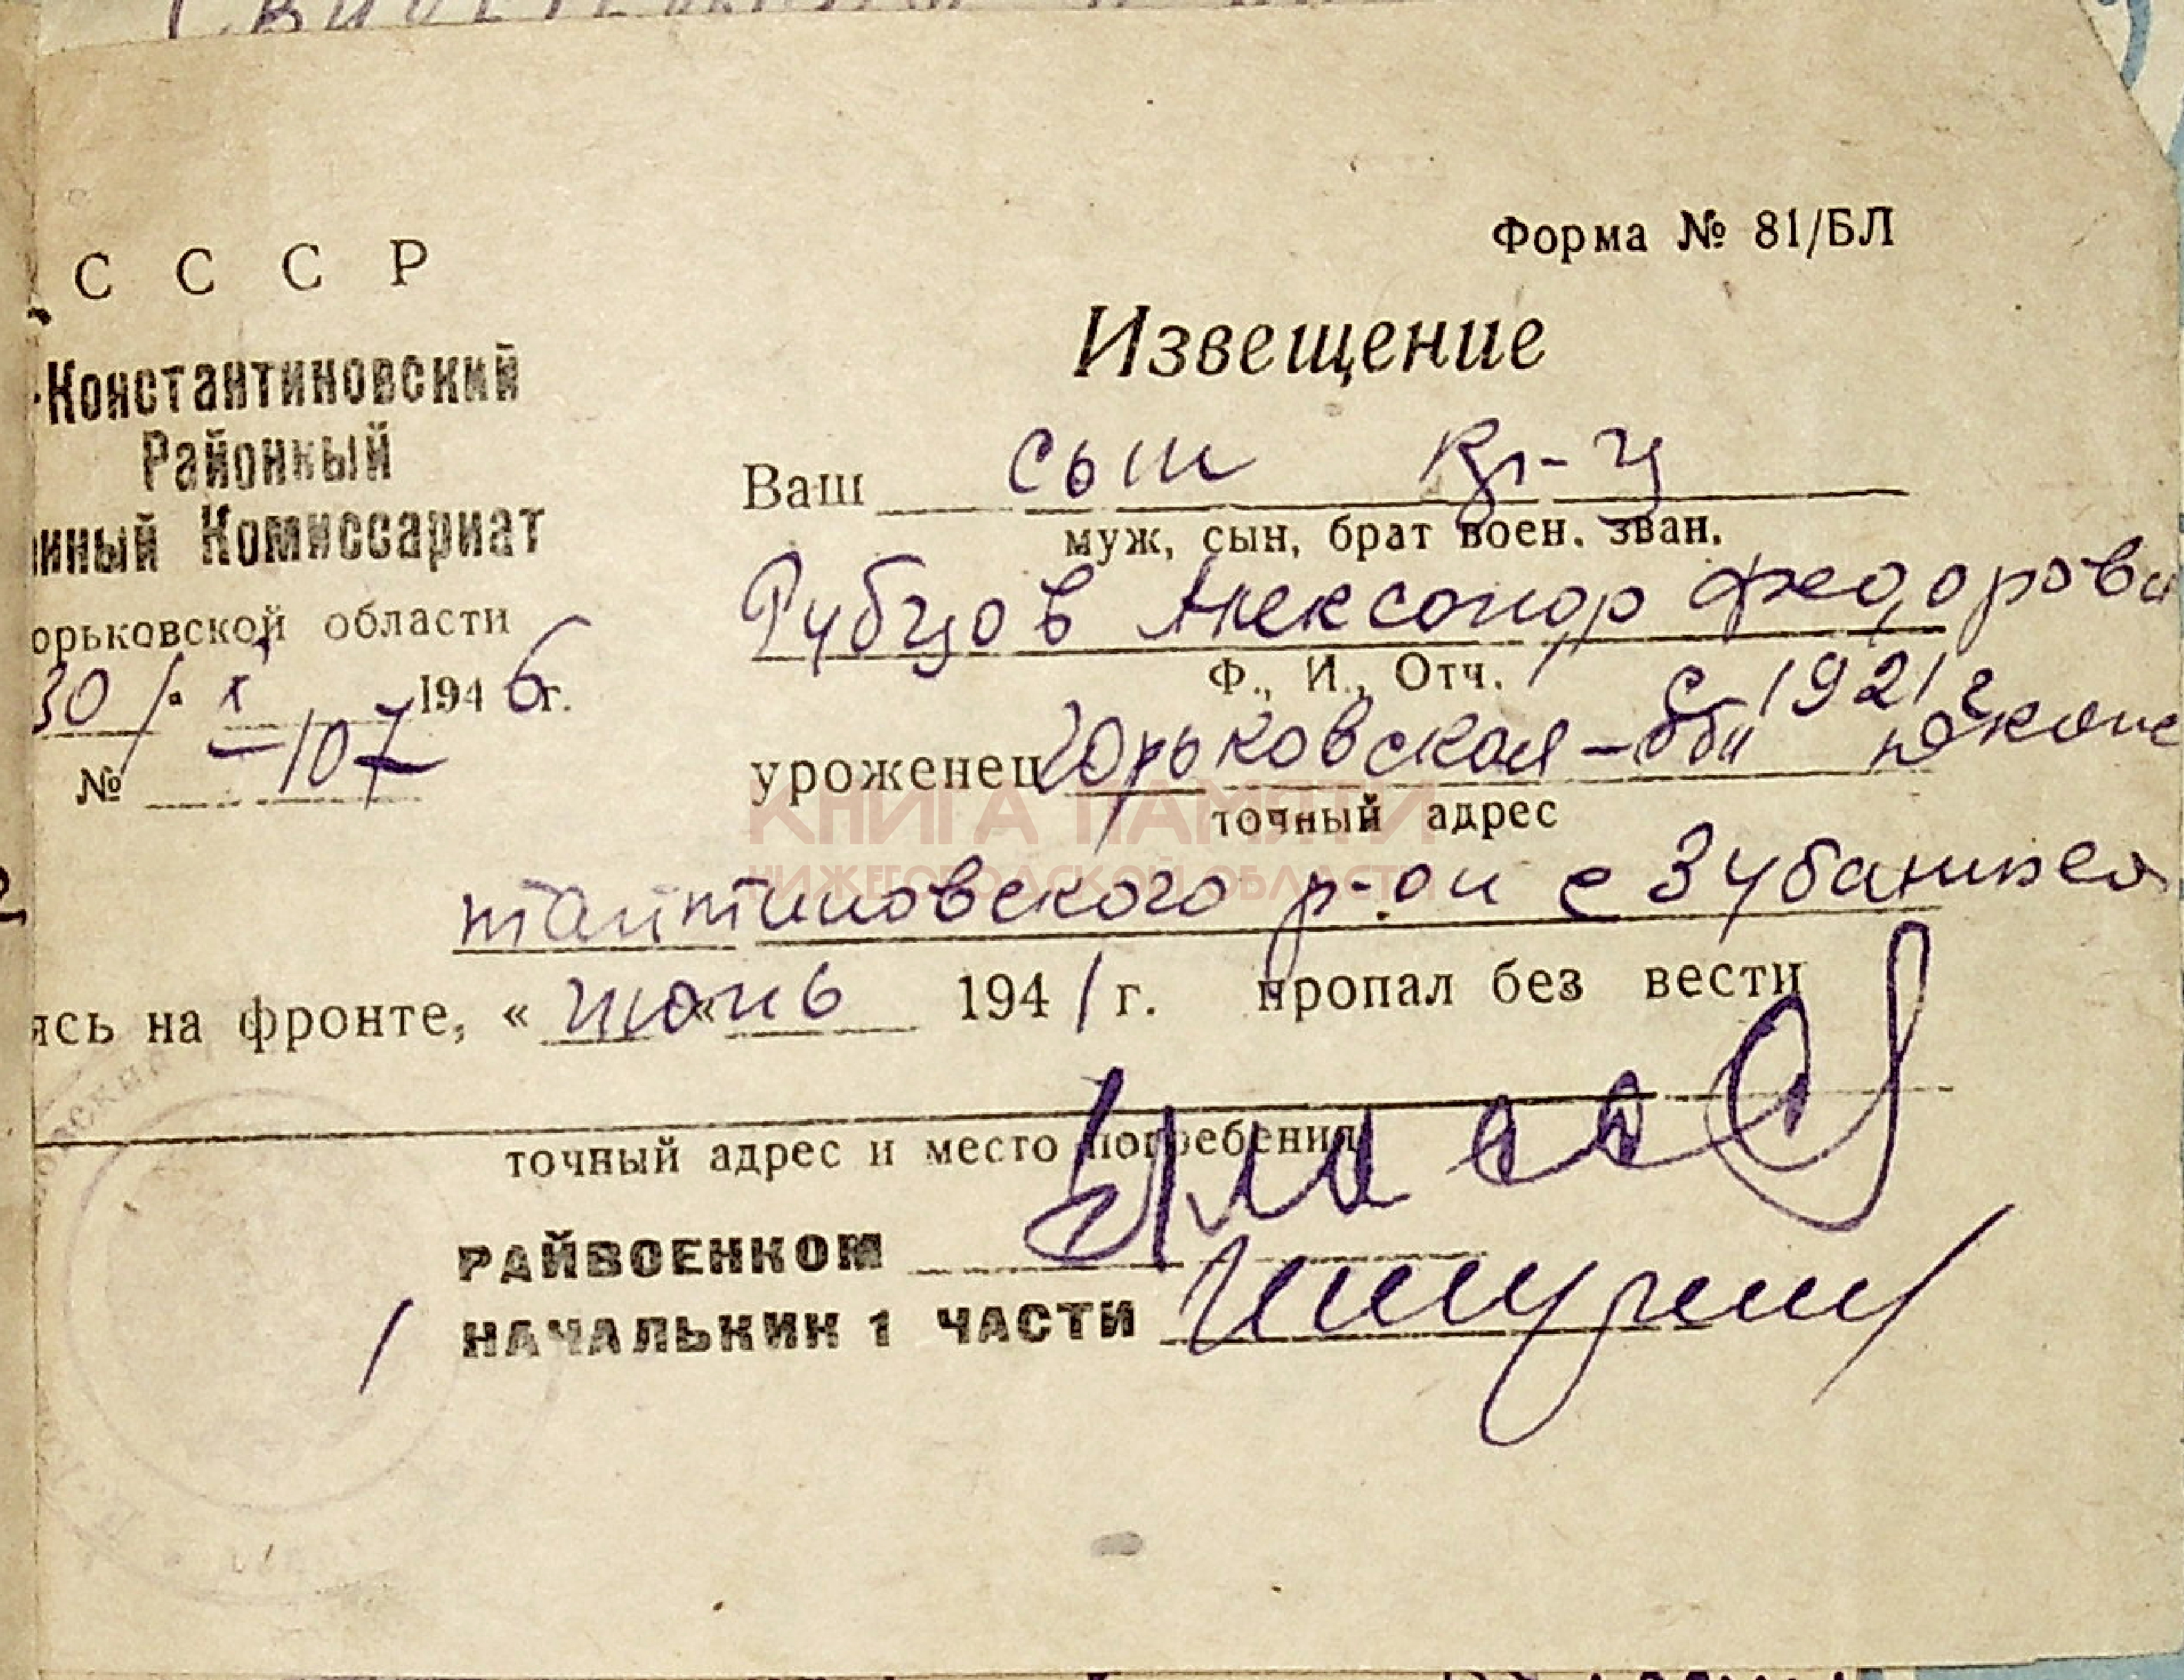 С С С Р
Форма № 81/БЛ
Извещение
-Константиновский
Районный
нный Комиссариат
орьковской области
30/ X 1946г.
№ -107
Ваш сын кр-ц
муж, сын, брат воен. зван.
Рубцов Александр Федорови
Ф., И., Отч.
с 1921 г
уроженец Горьковская-обл Дконс
точный адрес
КНИГА ПАМЯТИ
НИЖЕГОРОДСКОЙ ОБЛАСТИ
тантиновского р-он с Зубаниха
ясь на фронте, « июнь 1941 г. пропал без вести
точный адрес и место погребения
РАЙВОЕНКОМ
НАЧАЛЬНИК 1 ЧАСТИ